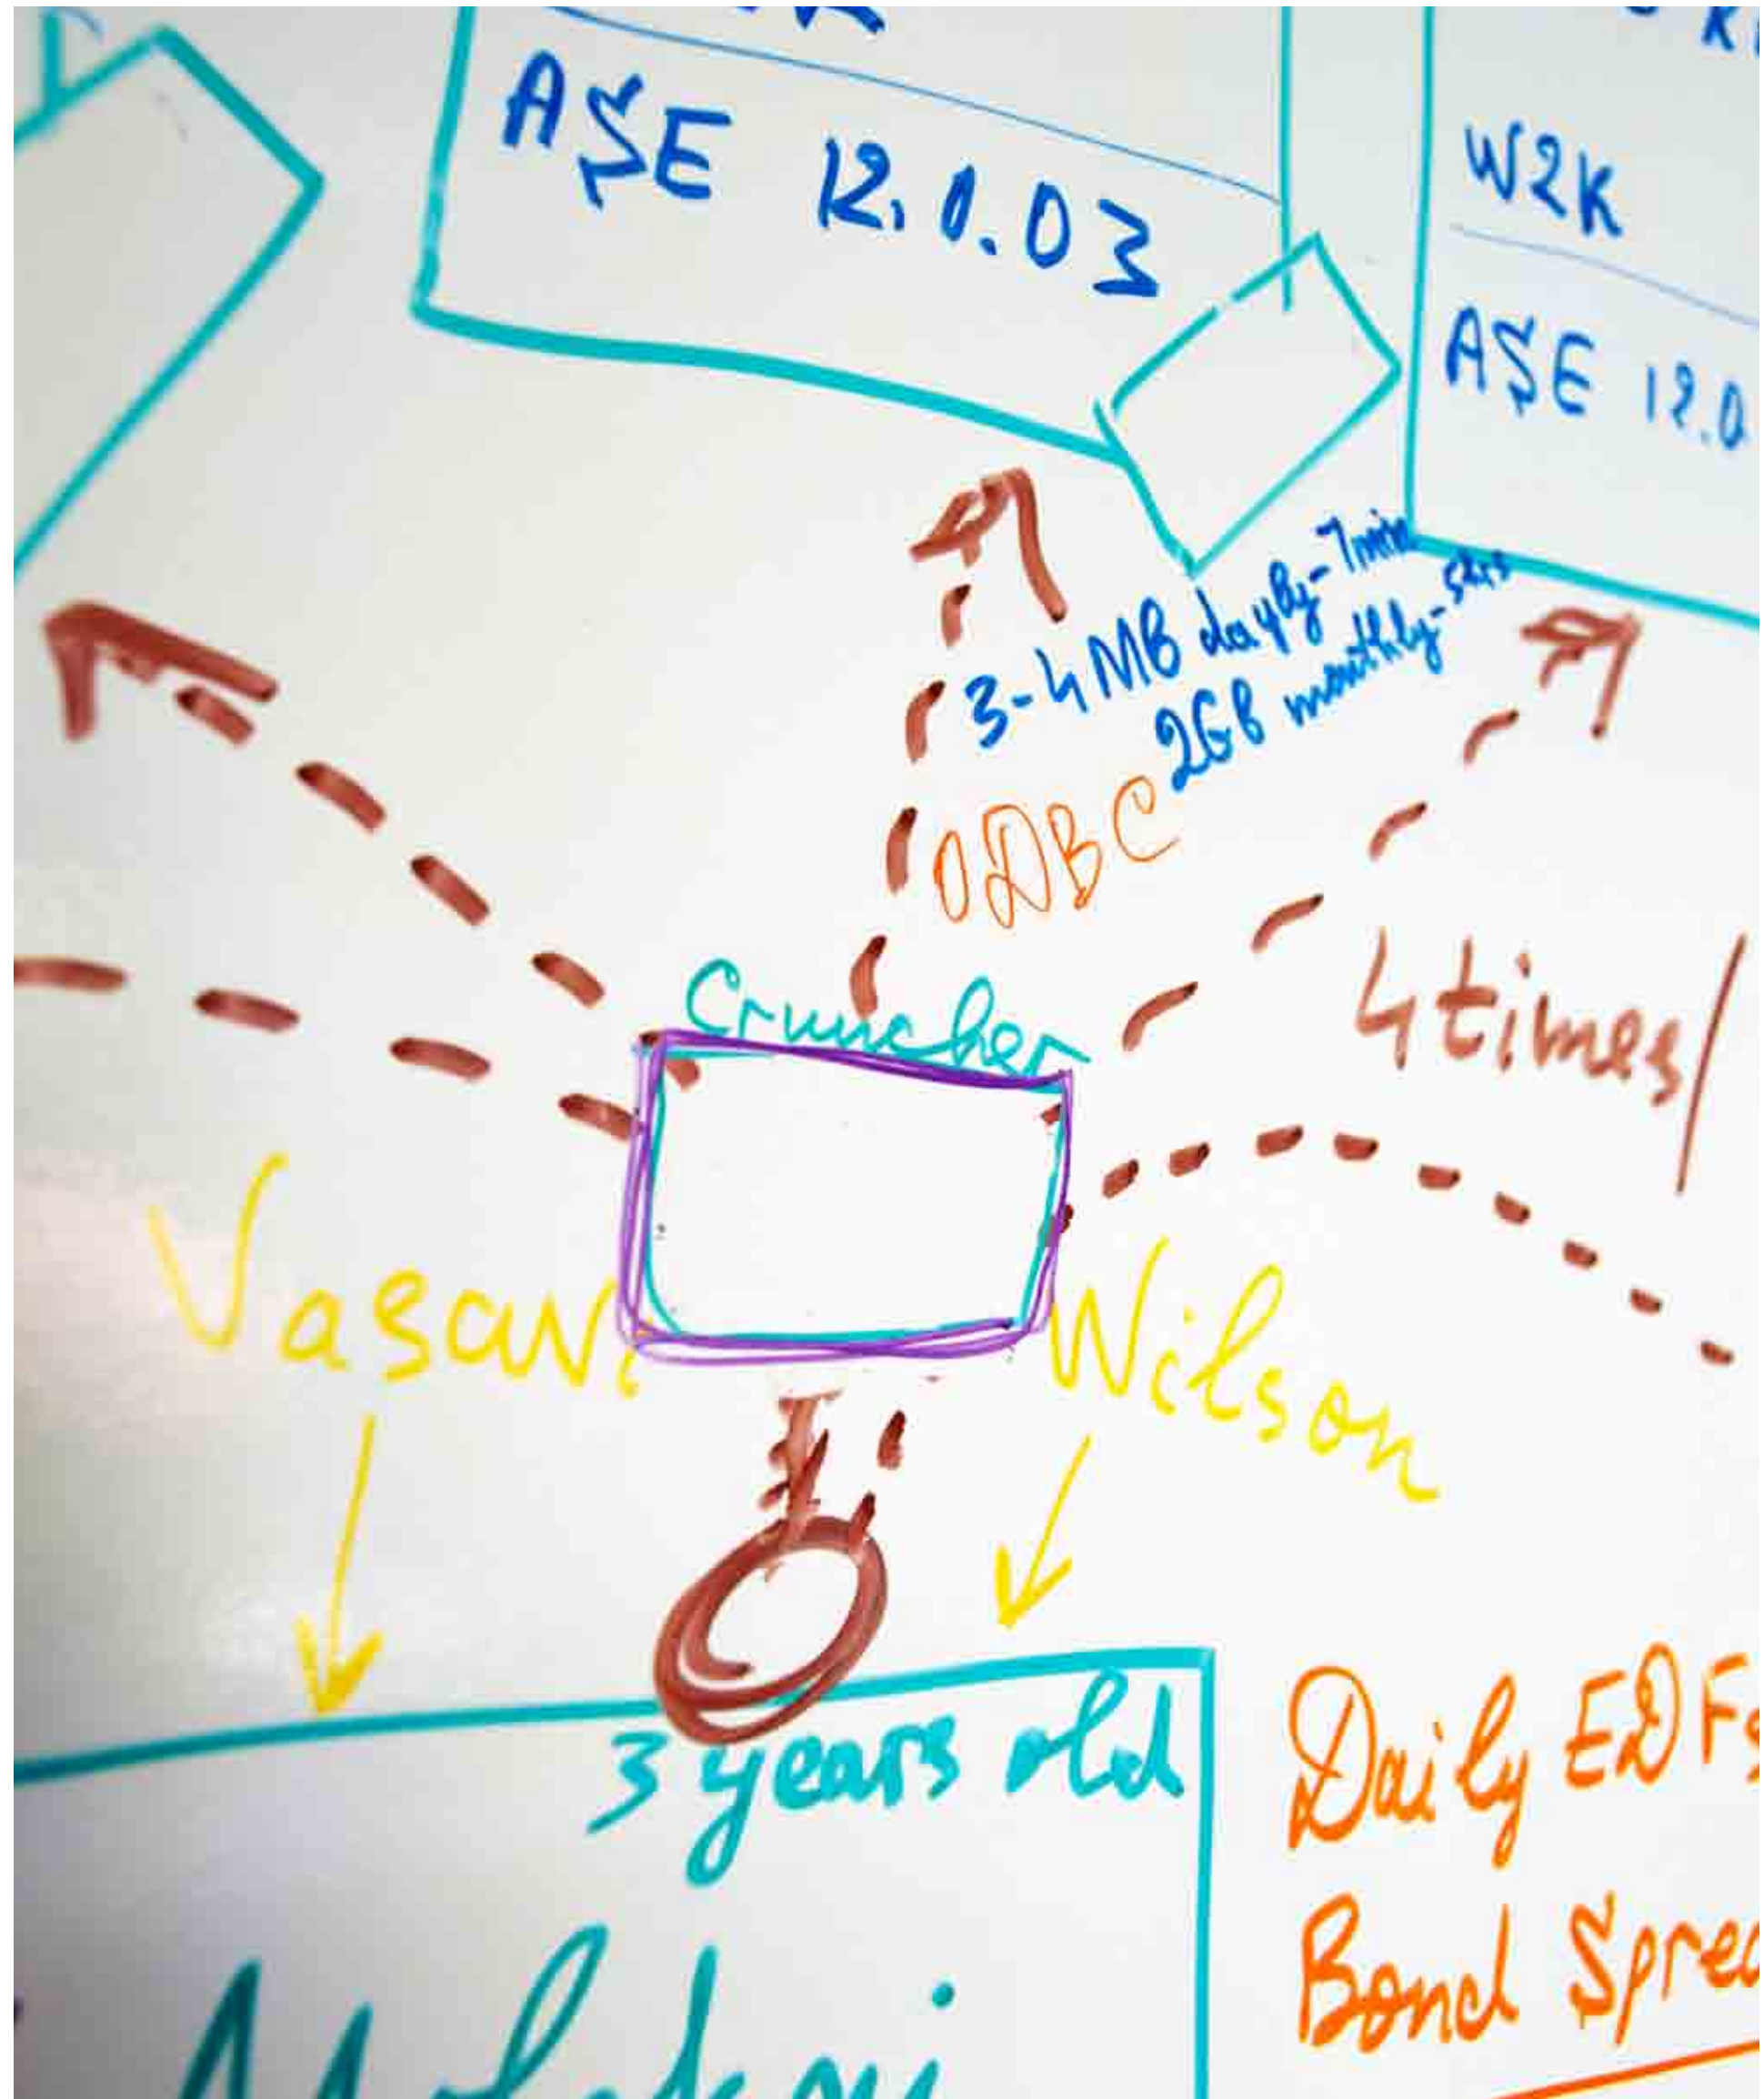 ASE 12.0.03
W2K
ASE 12.0
3-4MB dayly-7min
2GB monthly-5hrs
ODBC
4 times/
Cruncher
Vasari
Wilson
3 years old
Daily EDFs
Bond Sprea
Molokai